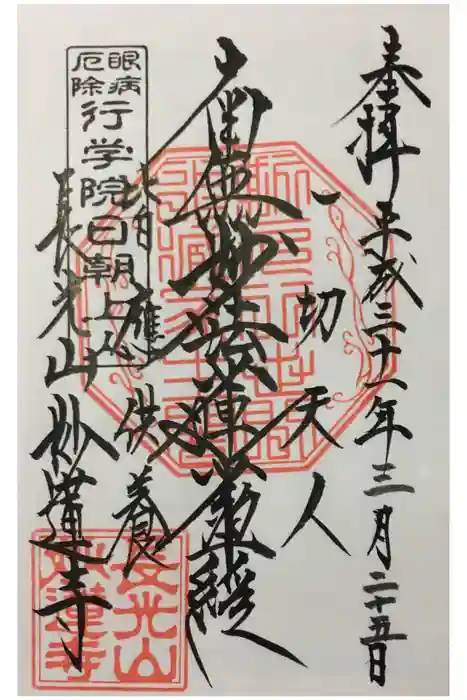 奉拝 平成三十一年三月二十五日
一切天人
南無妙法蓮華經
皆應供養
長光山妙蓮寺
眼病
厄除
行学院日朝上人
長光山
妙蓮寺